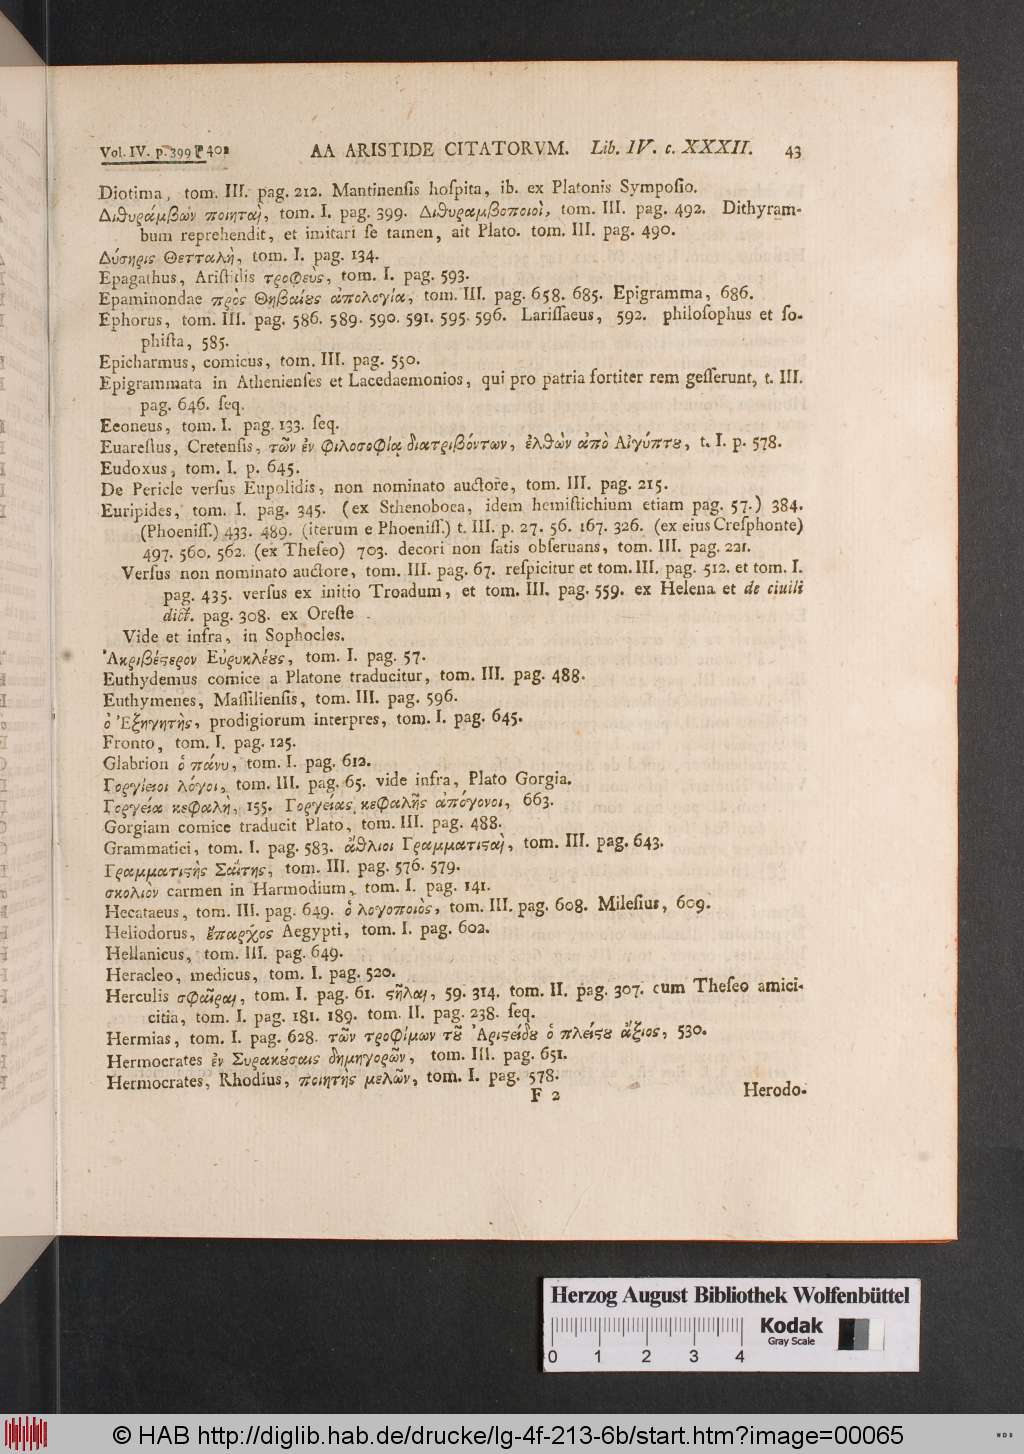 Vol. IV. p. 399 401
AA ARISTIDE CITATORVM. Lib. IV. c. XXXII. 43
Diotima, tom. III. pag. 212. Mantinenſis hoſpita, ib. ex Platonis Sympoſio.
Διθυράμβων ποιηταὶ, tom. I. pag. 399. Διθυραμβοποιοὶ, tom. III. pag. 492. Dithyram-
bum reprehendit, et imitari ſe tamen, ait Plato. tom. III. pag. 490.
Δύσηρις Θετταλὴ, tom. I. pag. 134.
Epagathus, Ariſtidis τροφεὺς, tom. I. pag. 593.
Epaminondae πρὸς Θηβαίȣς ἀπολογία, tom. III. pag. 658. 685. Epigramma, 686.
Ephorus, tom. III. pag. 586. 589. 590. 591. 595. 596. Lariſſaeus, 592. philoſophus et ſo-
phiſta, 585.
Epicharmus, comicus, tom. III. pag. 550.
Epigrammata in Athenienſes et Lacedaemonios, qui pro patria fortiter rem geſſerunt, t. III.
pag. 646. ſeq.
Eeoneus, tom. I. pag. 133. ſeq.
Euareſtus, Cretenſis, τῶν ἐν φιλοσοφίᾳ διατριβόντων, ἐλθὼν ἀπὸ Αἰγύπτȣ, t. I. p. 578.
Eudoxus, tom. I. p. 645.
De Pericle verſus Eupolidis, non nominato auctore, tom. III. pag. 215.
Euripides, tom. I. pag. 345. (ex Sthenoboea, idem hemiſtichium etiam pag. 57.) 384.
(Phoeniſſ.) 433. 489. (iterum e Phoeniſſ.) t. III. p. 27. 56. 167. 326. (ex eius Creſphonte)
497. 560. 562. (ex Theſeo) 703. decori non ſatis obſeruans, tom. III. pag. 221.
Verſus non nominato auctore, tom. III. pag. 67. reſpicitur et tom. III. pag. 512. et tom. I.
pag. 435. verſus ex initio Troadum, et tom. III. pag. 559. ex Helena et de ciuili
dict. pag. 308. ex Oreſte
Vide et infra, in Sophocles.
Ἀκριβέϛερον Εὐρυκλέȣς, tom. I. pag. 57.
Euthydemus comice a Platone traducitur, tom. III. pag. 488.
Euthymenes, Maſſilienſis, tom. III. pag. 596.
ὁ Ἐξηγητὴς, prodigiorum interpres, tom. I. pag. 645.
Fronto, tom. I. pag. 125.
Glabrion ὁ πάνυ, tom. I. pag. 612.
Γοργίειοι λόγοι, tom. III. pag. 65. vide infra, Plato Gorgia.
Γοργεία κεφαλὴ, 155. Γοργείας κεφαλῆς ἀπόγονοι, 663.
Gorgiam comice traducit Plato, tom. III. pag. 488.
Grammatici, tom. I. pag. 583. ἄθλιοι Γραμματιϛαὶ, tom. III. pag. 643.
Γραμματιϛὴς Σαΐτης, tom. III. pag. 576. 579.
σκολιὸν carmen in Harmodium, tom. I. pag. 141.
Hecataeus, tom. III. pag. 649. ὁ λογοποιὸς, tom. III. pag. 608. Mileſius, 609.
Heliodorus, ἔπαρχος Aegypti, tom. I. pag. 602.
Hellanicus, tom. III. pag. 649.
Heracleo, medicus, tom. I. pag. 520.
Herculis σφαῖραι, tom. I. pag. 61. ϛῆλαι, 59. 314. tom. II. pag. 307. cum Theſeo amici-
citia, tom. I. pag. 181. 189. tom. II. pag. 238. ſeq.
Hermias, tom. I. pag. 628. τῶν τροφίμων τȣ͂ Ἀριϛείδȣ ὁ πλείϛȣ ἄξιος, 530.
Hermocrates ἐν Συρακȣ́σαις δημηγορῶν, tom. III. pag. 651.
Hermocrates, Rhodius, ποιητὴς μελῶν, tom. I. pag. 578.
F 2 Herodo-
Herzog August Bibliothek Wolfenbüttel
Kodak
Gray Scale
0 1 2 3 4
© HAB http://diglib.hab.de/drucke/lg-4f-213-6b/start.htm?image=00065